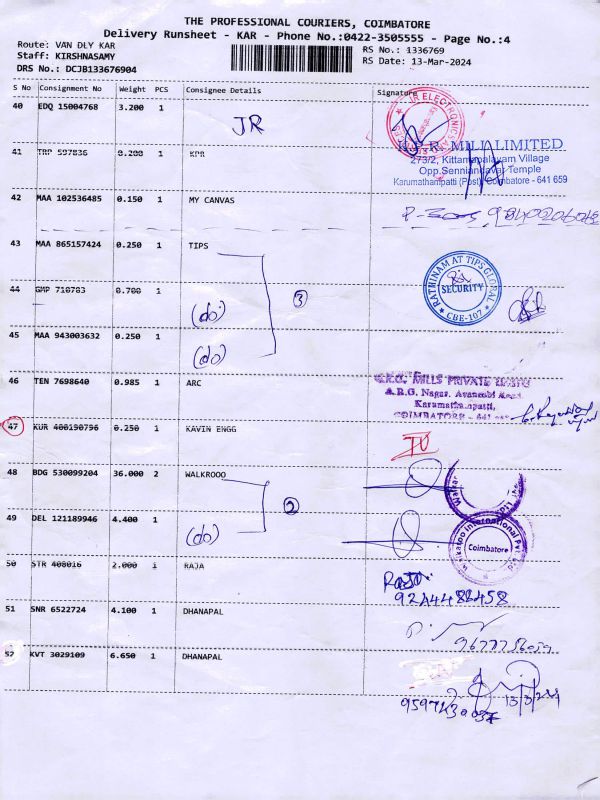 THE PROFESSIONAL COURIERS, COIMBATORE
Delivery Runsheet - KAR - Phone No.:0422-3505555 - Page No.:4
Route: VAN DLY KAR
RS No.: 1336769
Staff: KIRSHNASAMY
RS Date: 13-Mar-2024
DRS No.: DCJB133676904
S No Consignment No Weight PCS Consignee Details Signature
40 EDQ 15004768 3.200 1 JR
JR ELECTRONICS
41 TRP 597836 0.200 1 KPR
K.P.R. MILL LIMITED
273/2, Kittampalayam Village
Opp.Senniandavar Temple
Karumathampatti (Post), Coimbatore - 641 659
42 MAA 102536485 0.150 1 MY CANVAS
43 MAA 865157424 0.250 1 TIPS
RATHINAM AT TIPS GLOBAL
SECURITY
CBE-107
44 GMP 710783 0.700 1 (do)
3
45 MAA 943003632 0.250 1 (do)
46 TEN 7698640 0.985 1 ARC
MILLS PRIVATE
A.R.G. Nagar, Avanashi Road
Karamathampatti,
COIMBATORE - 641
47 KUR 400190796 0.250 1 KAVIN ENGG
48 BDG 530099204 36.000 2 WALKROOO
2
49 DEL 121189946 4.400 1 (do)
International Pvt. Ltd
Coimbatore
50 STR 408016 2.000 1 RAJA
51 SNR 6522724 4.100 1 DHANAPAL
52 KVT 3029109 6.650 1 DHANAPAL
13/3/24